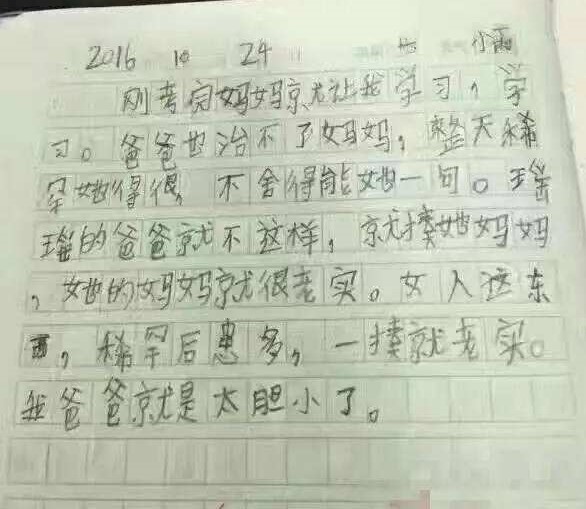 2016 10 24 一 小雨
刚考完妈妈就让我学习，学
习。爸爸也治不了妈妈，整天稀
罕她得很，不舍得能她一句。瑶
瑶的爸爸就不这样，就揍她妈妈
，她的妈妈就很老实。女人这东
西，稀罕后患多，一揍就老实。
我爸爸就是太胆小了。